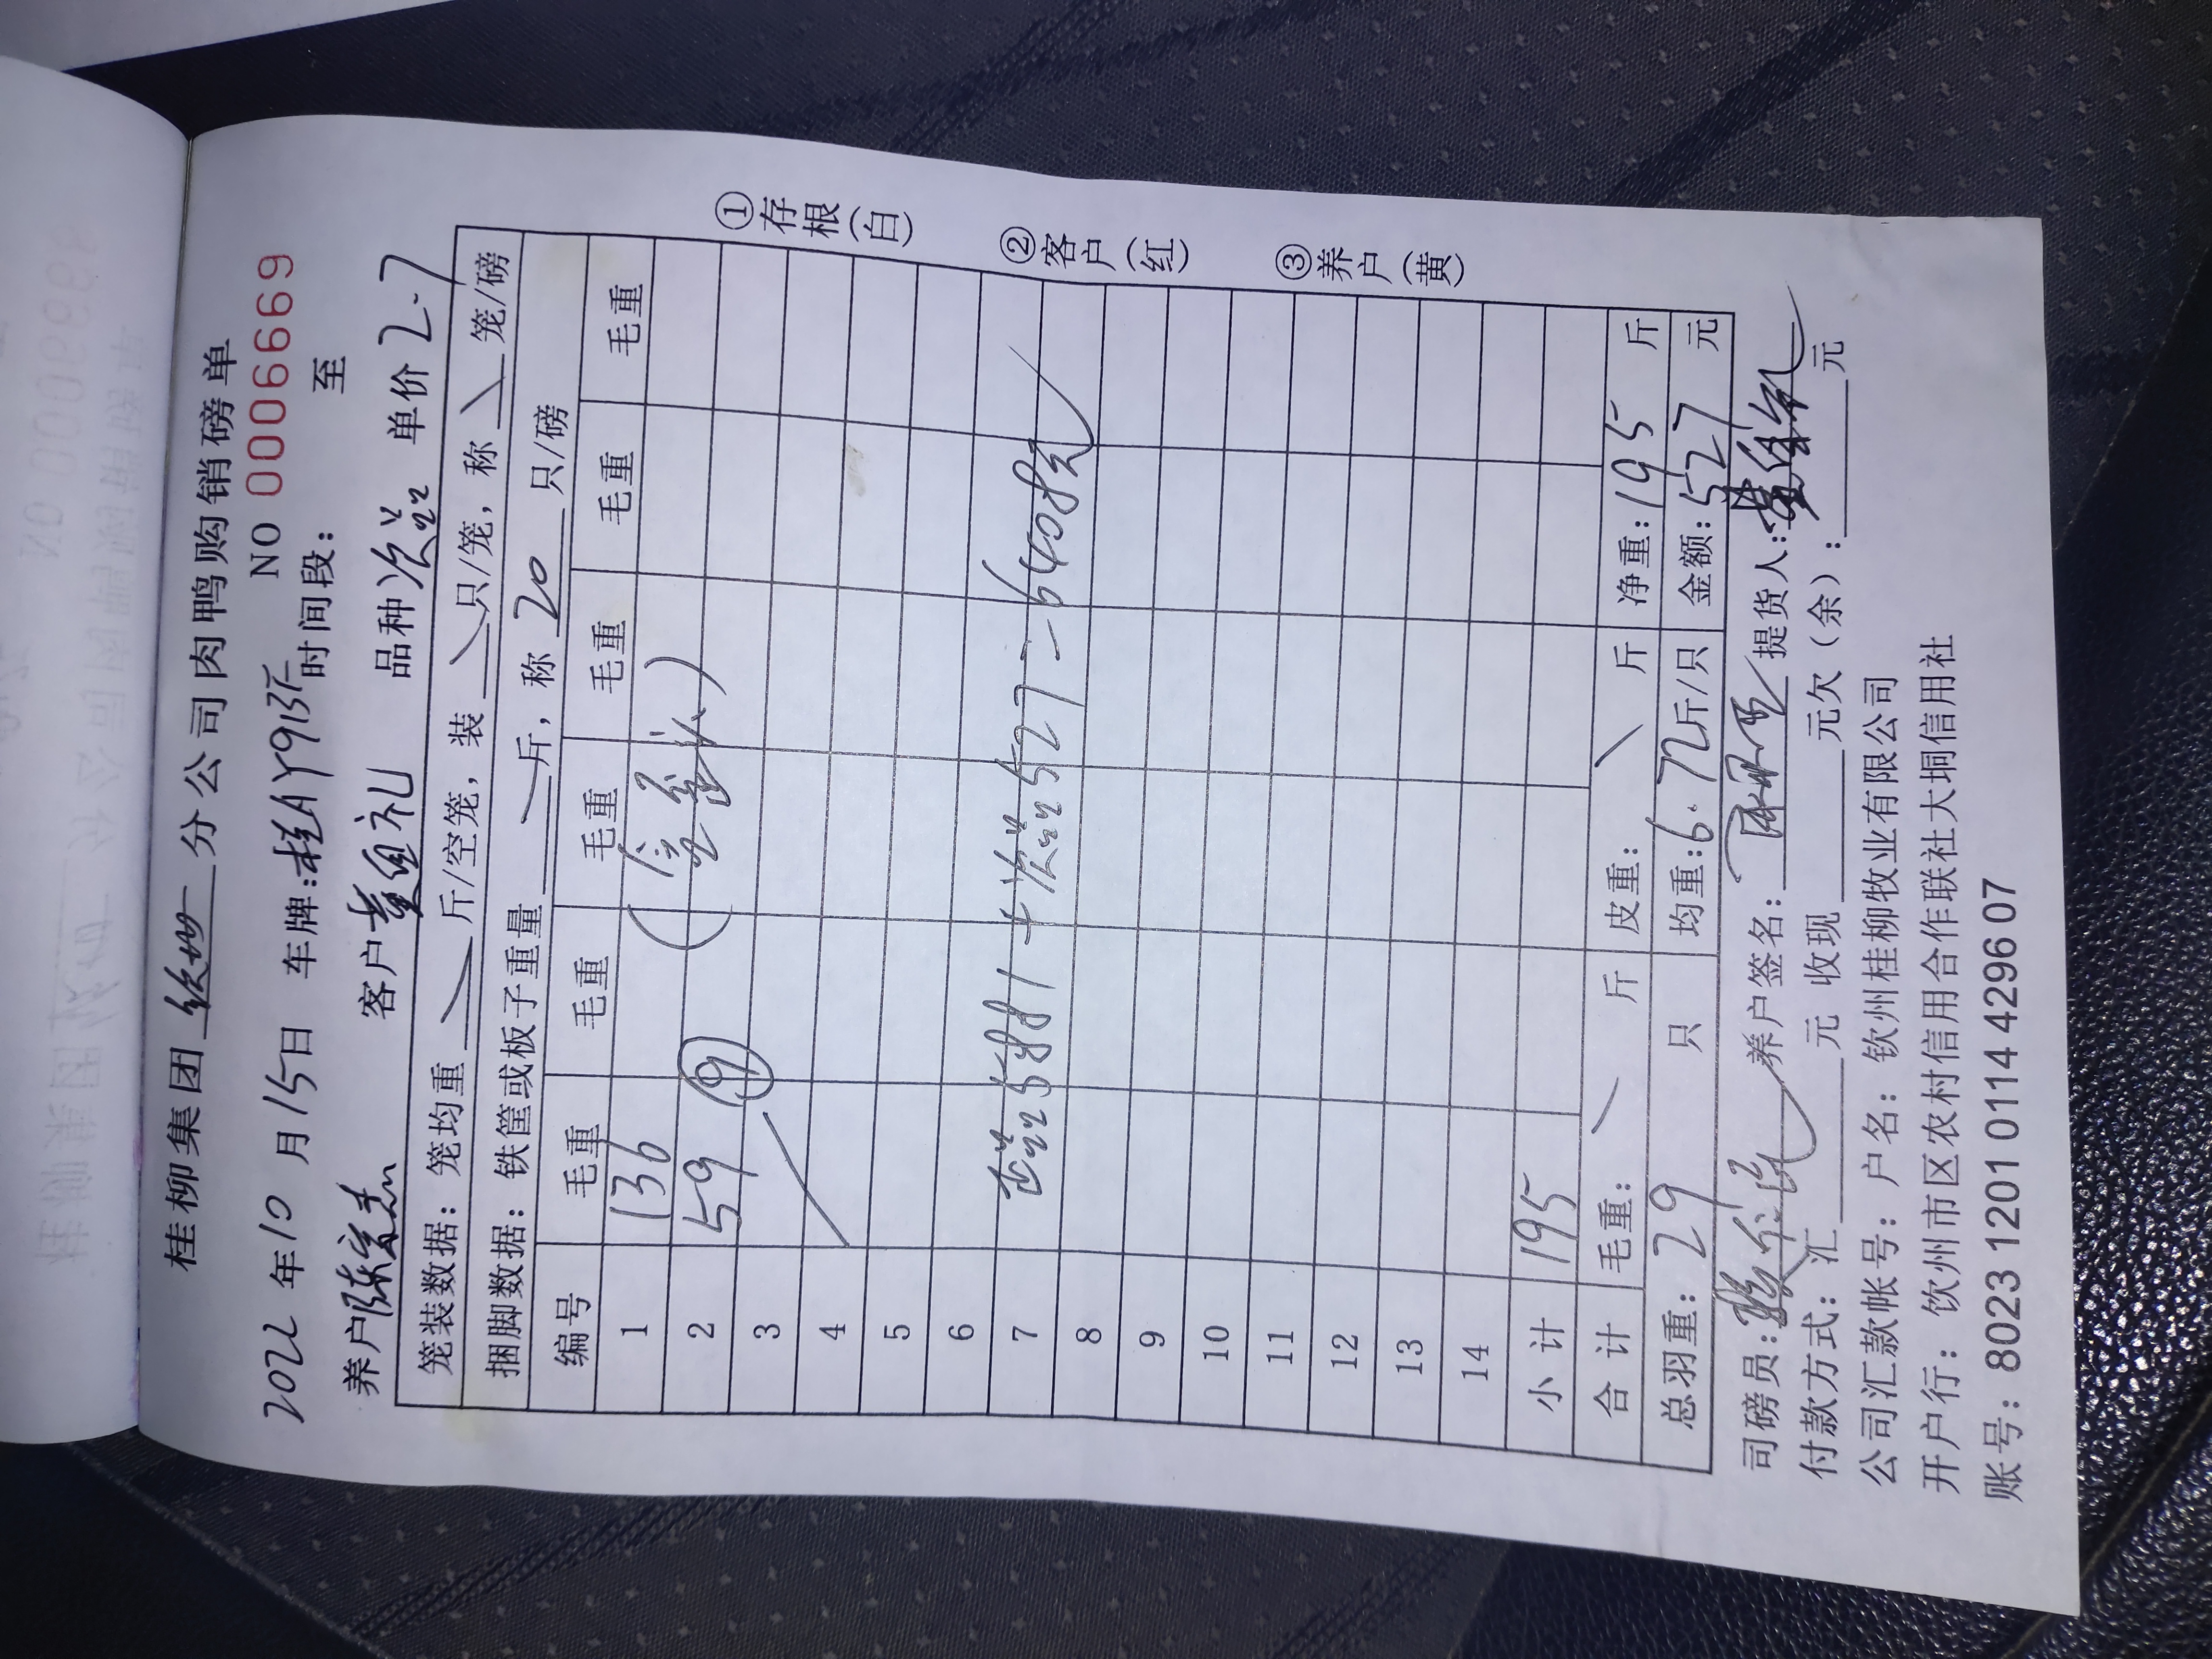 桂柳集团 钦州 分公司肉鸭购销磅单
NO 0006669
2022 年 10 月 15 日 车牌:桂AY913F 时间段: 至
养户 陈 客户 黄祖礼 品种 次苗 单价 2.7
笼装数据: 笼均重 \ 斤/空笼, 装 \ 只/笼, 称 \ 笼/磅
捆脚数据: 铁筐或板子重量 \ 斤, 称 20 只/磅
编号 毛重 毛重 毛重 毛重 毛重 毛重
1 136
2 59 ⑨
3
4
5
6
7 5881 + 527 = 6408元
8
9
10
11
12
13
14
小计 195
合计 毛重: \ 斤 皮重: \ 斤 净重: 195 斤
总羽重: 29 只 均重: 6.72 斤/只 金额: 527 元
司磅员: 养户签名: 提货人:
付款方式: 汇 元 收现 元欠(余): 元
公司汇款帐号: 户名: 钦州桂柳牧业有限公司
开户行: 饮州市区农村信用合作联社大垌信用社
账号: 8023 1201 0114 4296 07
①存根(白)
②客户(红)
③养户(黄)